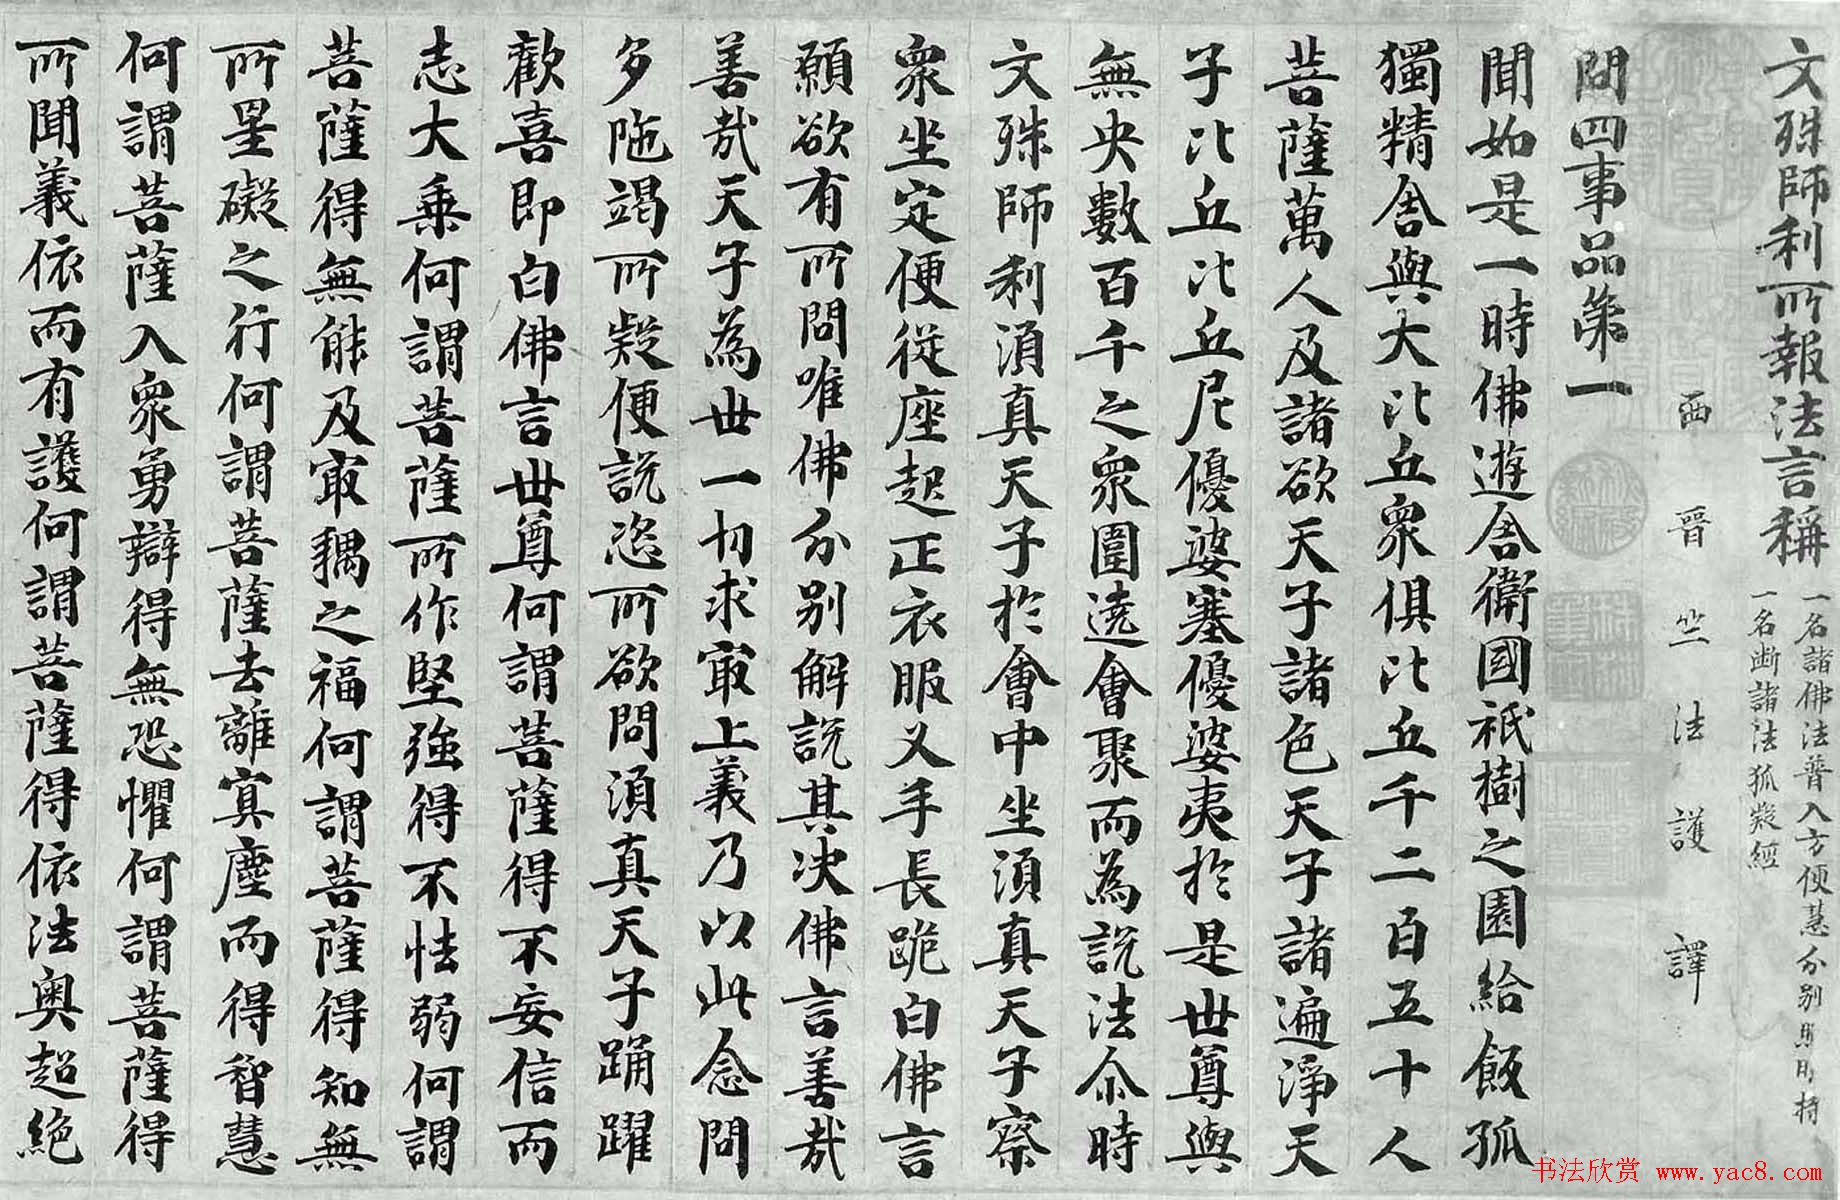 文殊師利所報法言稱
一名諸佛法普入方便慧分別照明持
一名断諸法狐疑經
西晉竺法護譯
問四事品第一
聞如是一時佛遊舍衛國祇樹之園給飯孤
獨精舍與大比丘衆俱比丘千二百五十人
菩薩萬人及諸欲天子諸色天子諸遍淨天
子比丘比丘尼優婆塞優婆夷於是世尊與
無央數百千之衆圍遶會聚而為說法尒時
文殊師利湏真天子於會中坐湏真天子察
衆坐定便從座起正衣服叉手長跪白佛言
願欲有所問唯佛分別解說其決佛言善哉
善哉天子為世一切求最上義乃以此念問
多陁竭所疑便說恣所欲問湏真天子踊躍
歡喜即白佛言世尊何謂菩薩得不妄信而
志大乘何謂菩薩所作堅強得不怯弱何謂
菩薩得無能及最耦之福何謂菩薩得知無
所罣礙之行何謂菩薩去離冥塵而得智慧
何謂菩薩入衆勇辯得無恐懼何謂菩薩得
所聞義依而有護何謂菩薩得依法奥超絶
书法欣赏 www.yac8.com